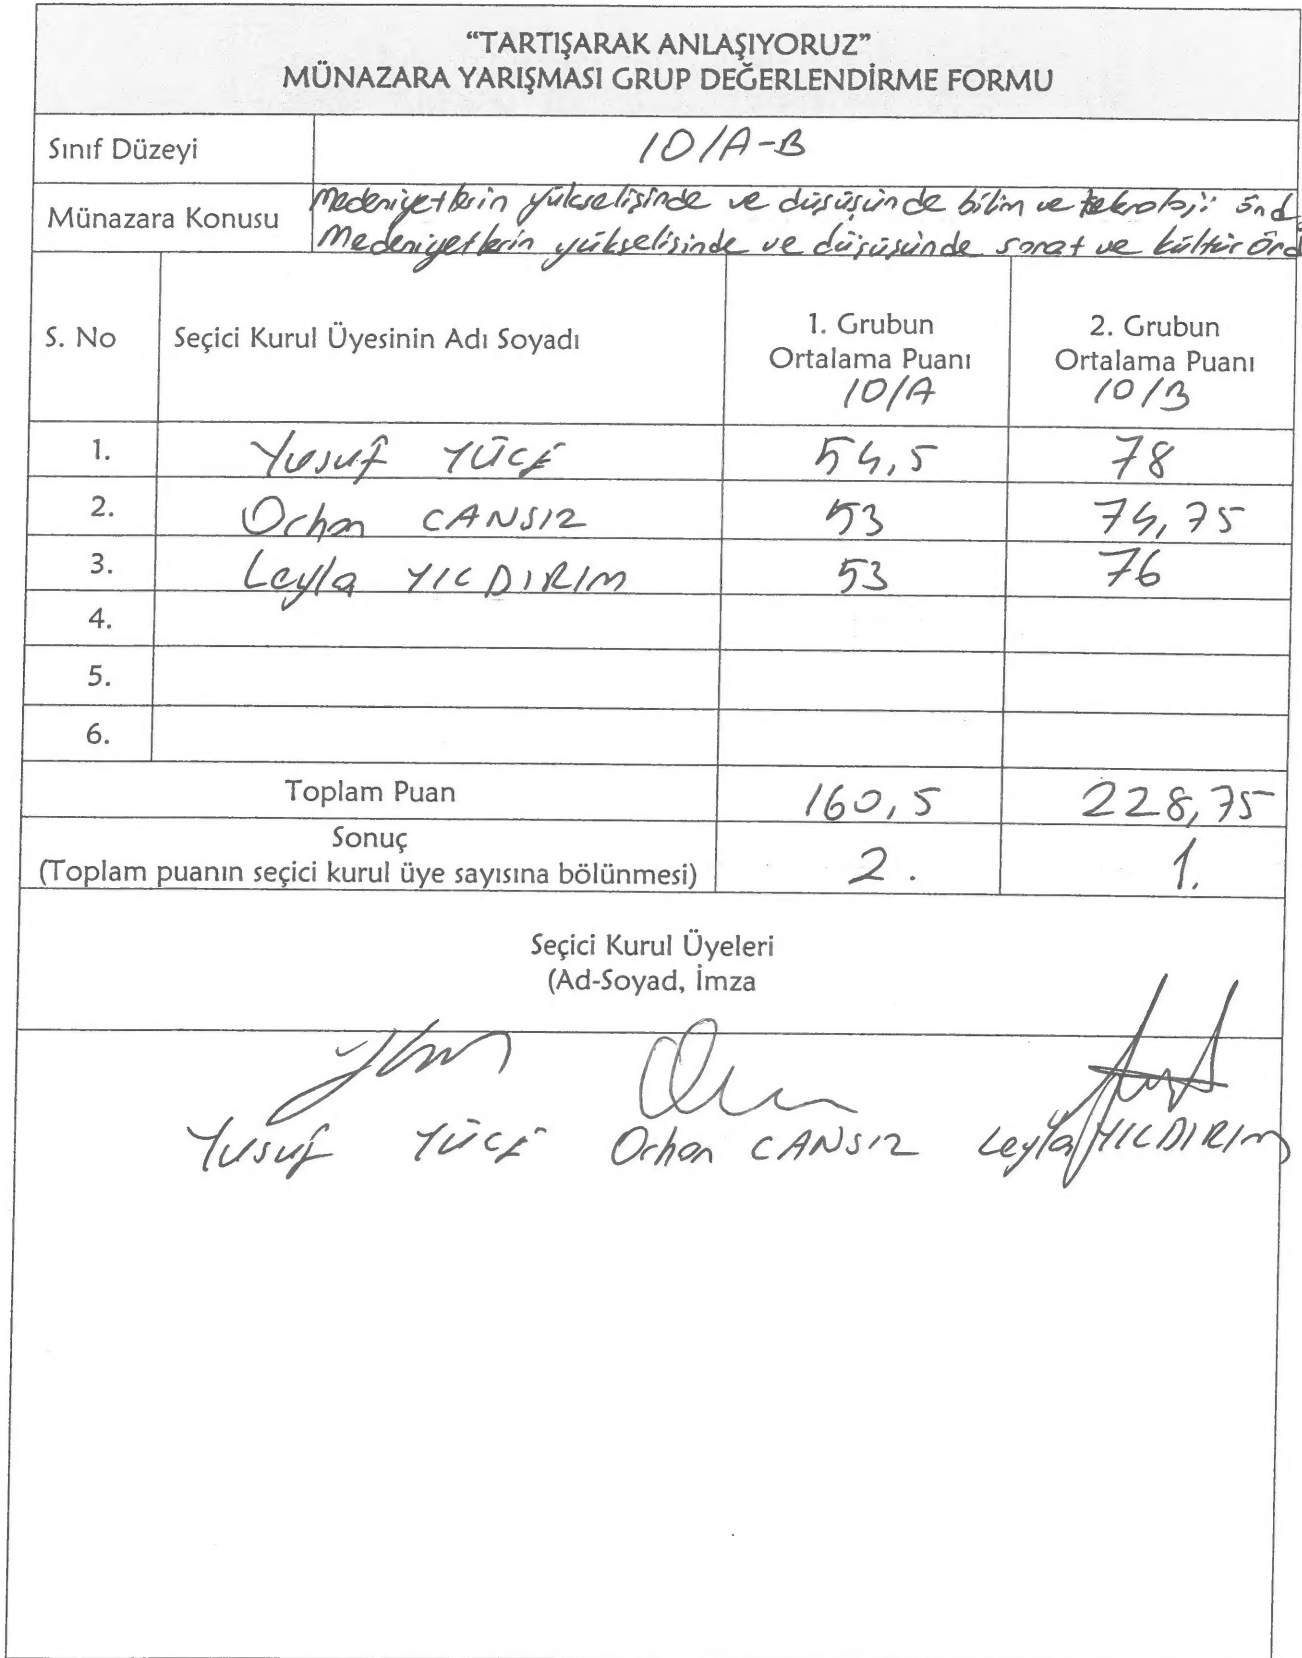 "TARTIŞARAK ANLAŞIYORUZ"
MÜNAZARA YARIŞMASI GRUP DEĞERLENDİRME FORMU
Sınıf Düzeyi 10/A-B
Münazara Konusu Medeniyetlerin yükselişinde ve düşüşünde bilim ve teknoloji önd
Medeniyetlerin yükselişinde ve düşüşünde sanat ve kültür önd
S. No Seçici Kurul Üyesinin Adı Soyadı 1. Grubun Ortalama Puanı 10/A 2. Grubun Ortalama Puanı 10/B
1. Yusuf YÜCE 54,5 78
2. Orhan CANSIZ 53 74,75
3. Leyla YILDIRIM 53 76
4.
5.
6.
Toplam Puan 160,5 228,75
Sonuç
(Toplam puanın seçici kurul üye sayısına bölünmesi) 2. 1.
Seçici Kurul Üyeleri
(Ad-Soyad, İmza
Yusuf YÜCE Orhan CANSIZ Leyla YILDIRIM